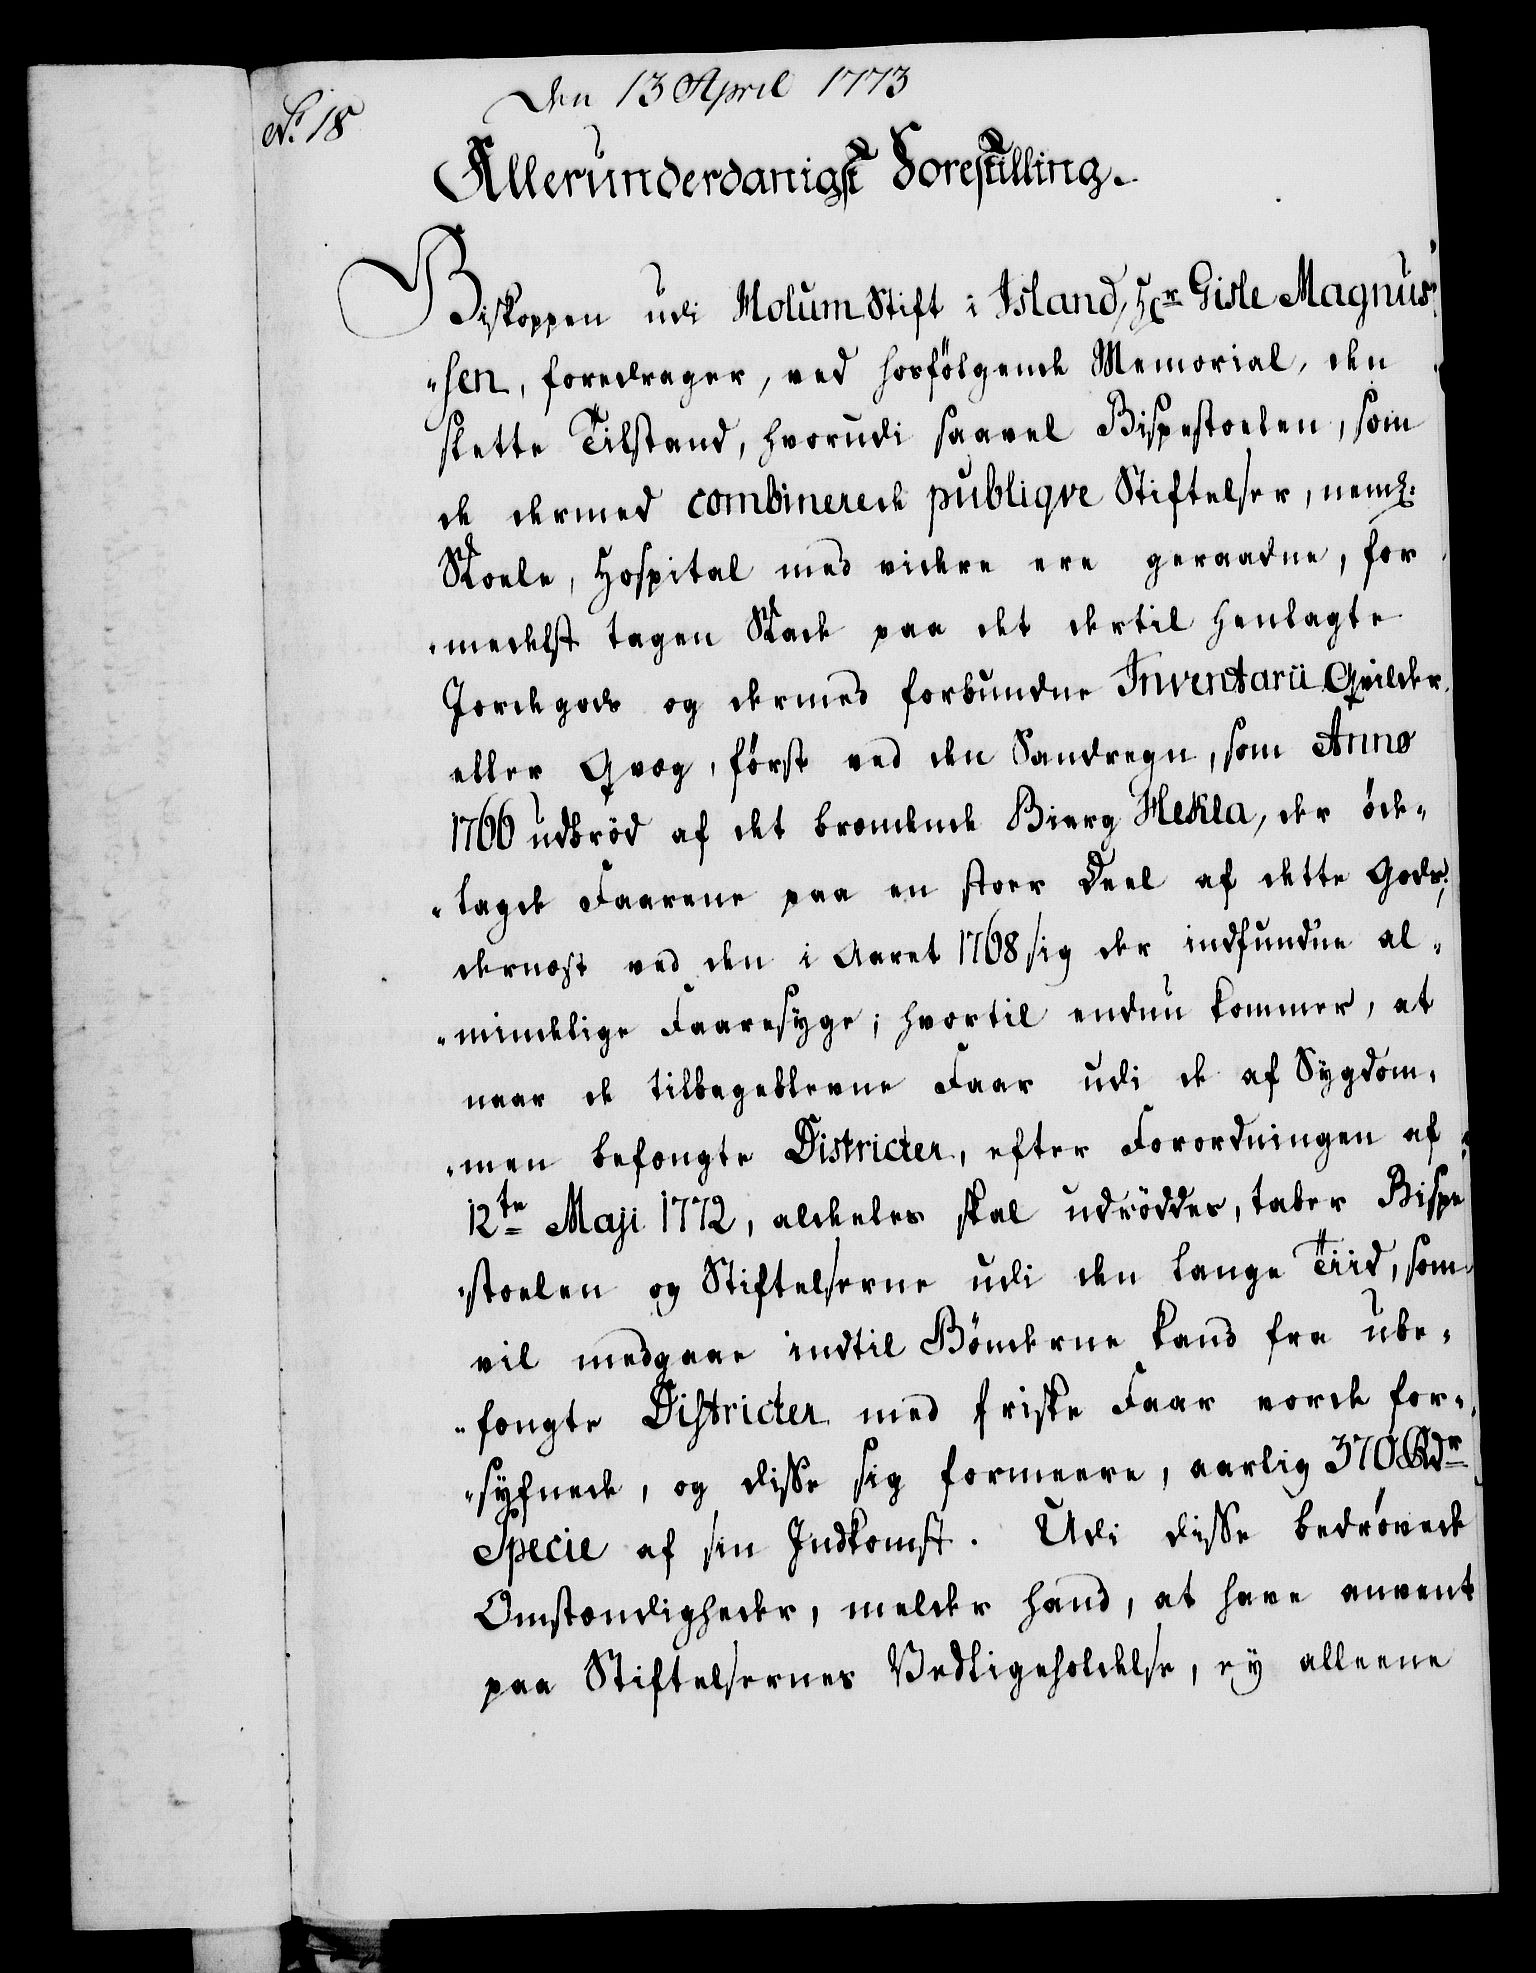 Den 13 April 1773
No. 18
Allerunderdanigst Forestilling.
Biskoppen udi Holum Stift i Island, Hr. Gisle Magnus¬
"sen, foredrager, ved hosfölgende Memorial, den
slette Tilstand, hvorudi saavel Bispestoelen, som
de dermed combinerede publiqve Stiftelser, neml:
Skoele, Hospital med videre ere geraadne, for
"medelst tagen Skade paa det dertil henlagte
Jordegods og dermed forbundne Inventarii Qvilder
eller Qvæg, först ved den Sandregn, som Anno
1766 udbröd af det brændende Bierg Hekla, der öde¬
"lagde Faarene paa en stoer Deel af dette Gods;
dernæst ved den i Aaret 1768 sig der indfundne al¬
"mindelige Faaresyge; hvortil endnu kommer, at
naar de tilbageblevne Faar udi de af Sygdom¬
"men befængte Districter, efter Forordningen af
12te Maji 1772, aldeles skal udröddes, taber Bispe
"stoelen og Stiftelserne udi den lange Tiid, som
vil medgaae indtil Bönderne kand fra ube¬
"fængte Districter med friske Faar vorde for¬
"synede, og disse sig formeere, aarlig 370 Rdr
Specie af sin Indkomst. Udi disse bedrövede
Omstændigheder, melder hand, at have anvent
paa Stiftelsernes Vedligeholdelse, ey alleene